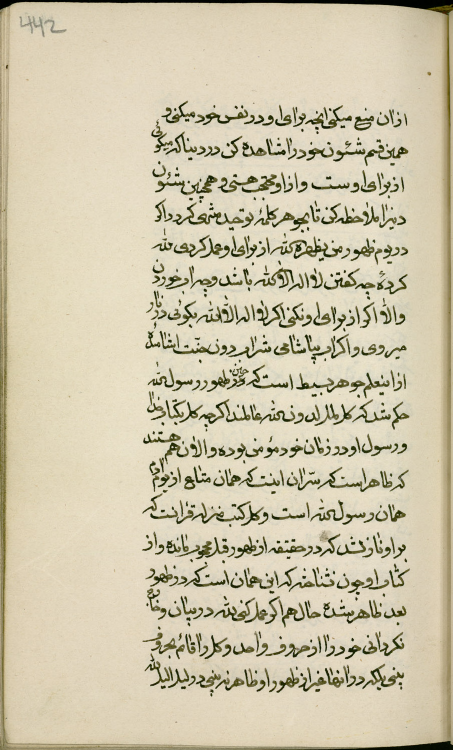 ۴۴۲
ازان منع میکنی انچه برای او در نفس خود میکنی و
همین قسم شئون خود را مشاهده کن در دینا که میکوئی
از برای اوست و از او محتجب هستی و همچنین شئون
دیگر را ملاحظه کن تا بجوهر کلمهٔ توحید منتهی کردد اکر
در یوم ظهور من یظهره الله از برای او عمل کردی لله
کردهٔ چه کفتن لا اله الا الله باشد وچه از خوردن
والا اکر از برای او نکنی اکر لا اله الا الله بکوئی در نار
میروی و اکر اب بیاشامی شراب دون جنت اشامیدهٔ
از اینعلم جوهر بسیط است که در حین ظهور رسول الله
حکم شد که کل لله لدون الله عاملند اکرچه کل بکتاب خدا
و رسول او در زمان خود مؤمن بوده والان هم هستند
که ظاهر است که سر ان اینست که همان متابع از یوم ادم
همان رسول الله است و کل کتب منزله قرانست که
بر او نازل شد که در حقیقه از ظهور قبل محجوب مانده و از
کتاب او چون نشناخته که این همان است که در ظهور
بعد ظاهر شده حال هم اکر عمل کنی لله در بیان و خارج
نکردانی خود را از حروف واحد و کل را قائم بحروف
بینی بلکه در انها غیر از ظهور او ظاهر نه بینی در لیل الیل لله